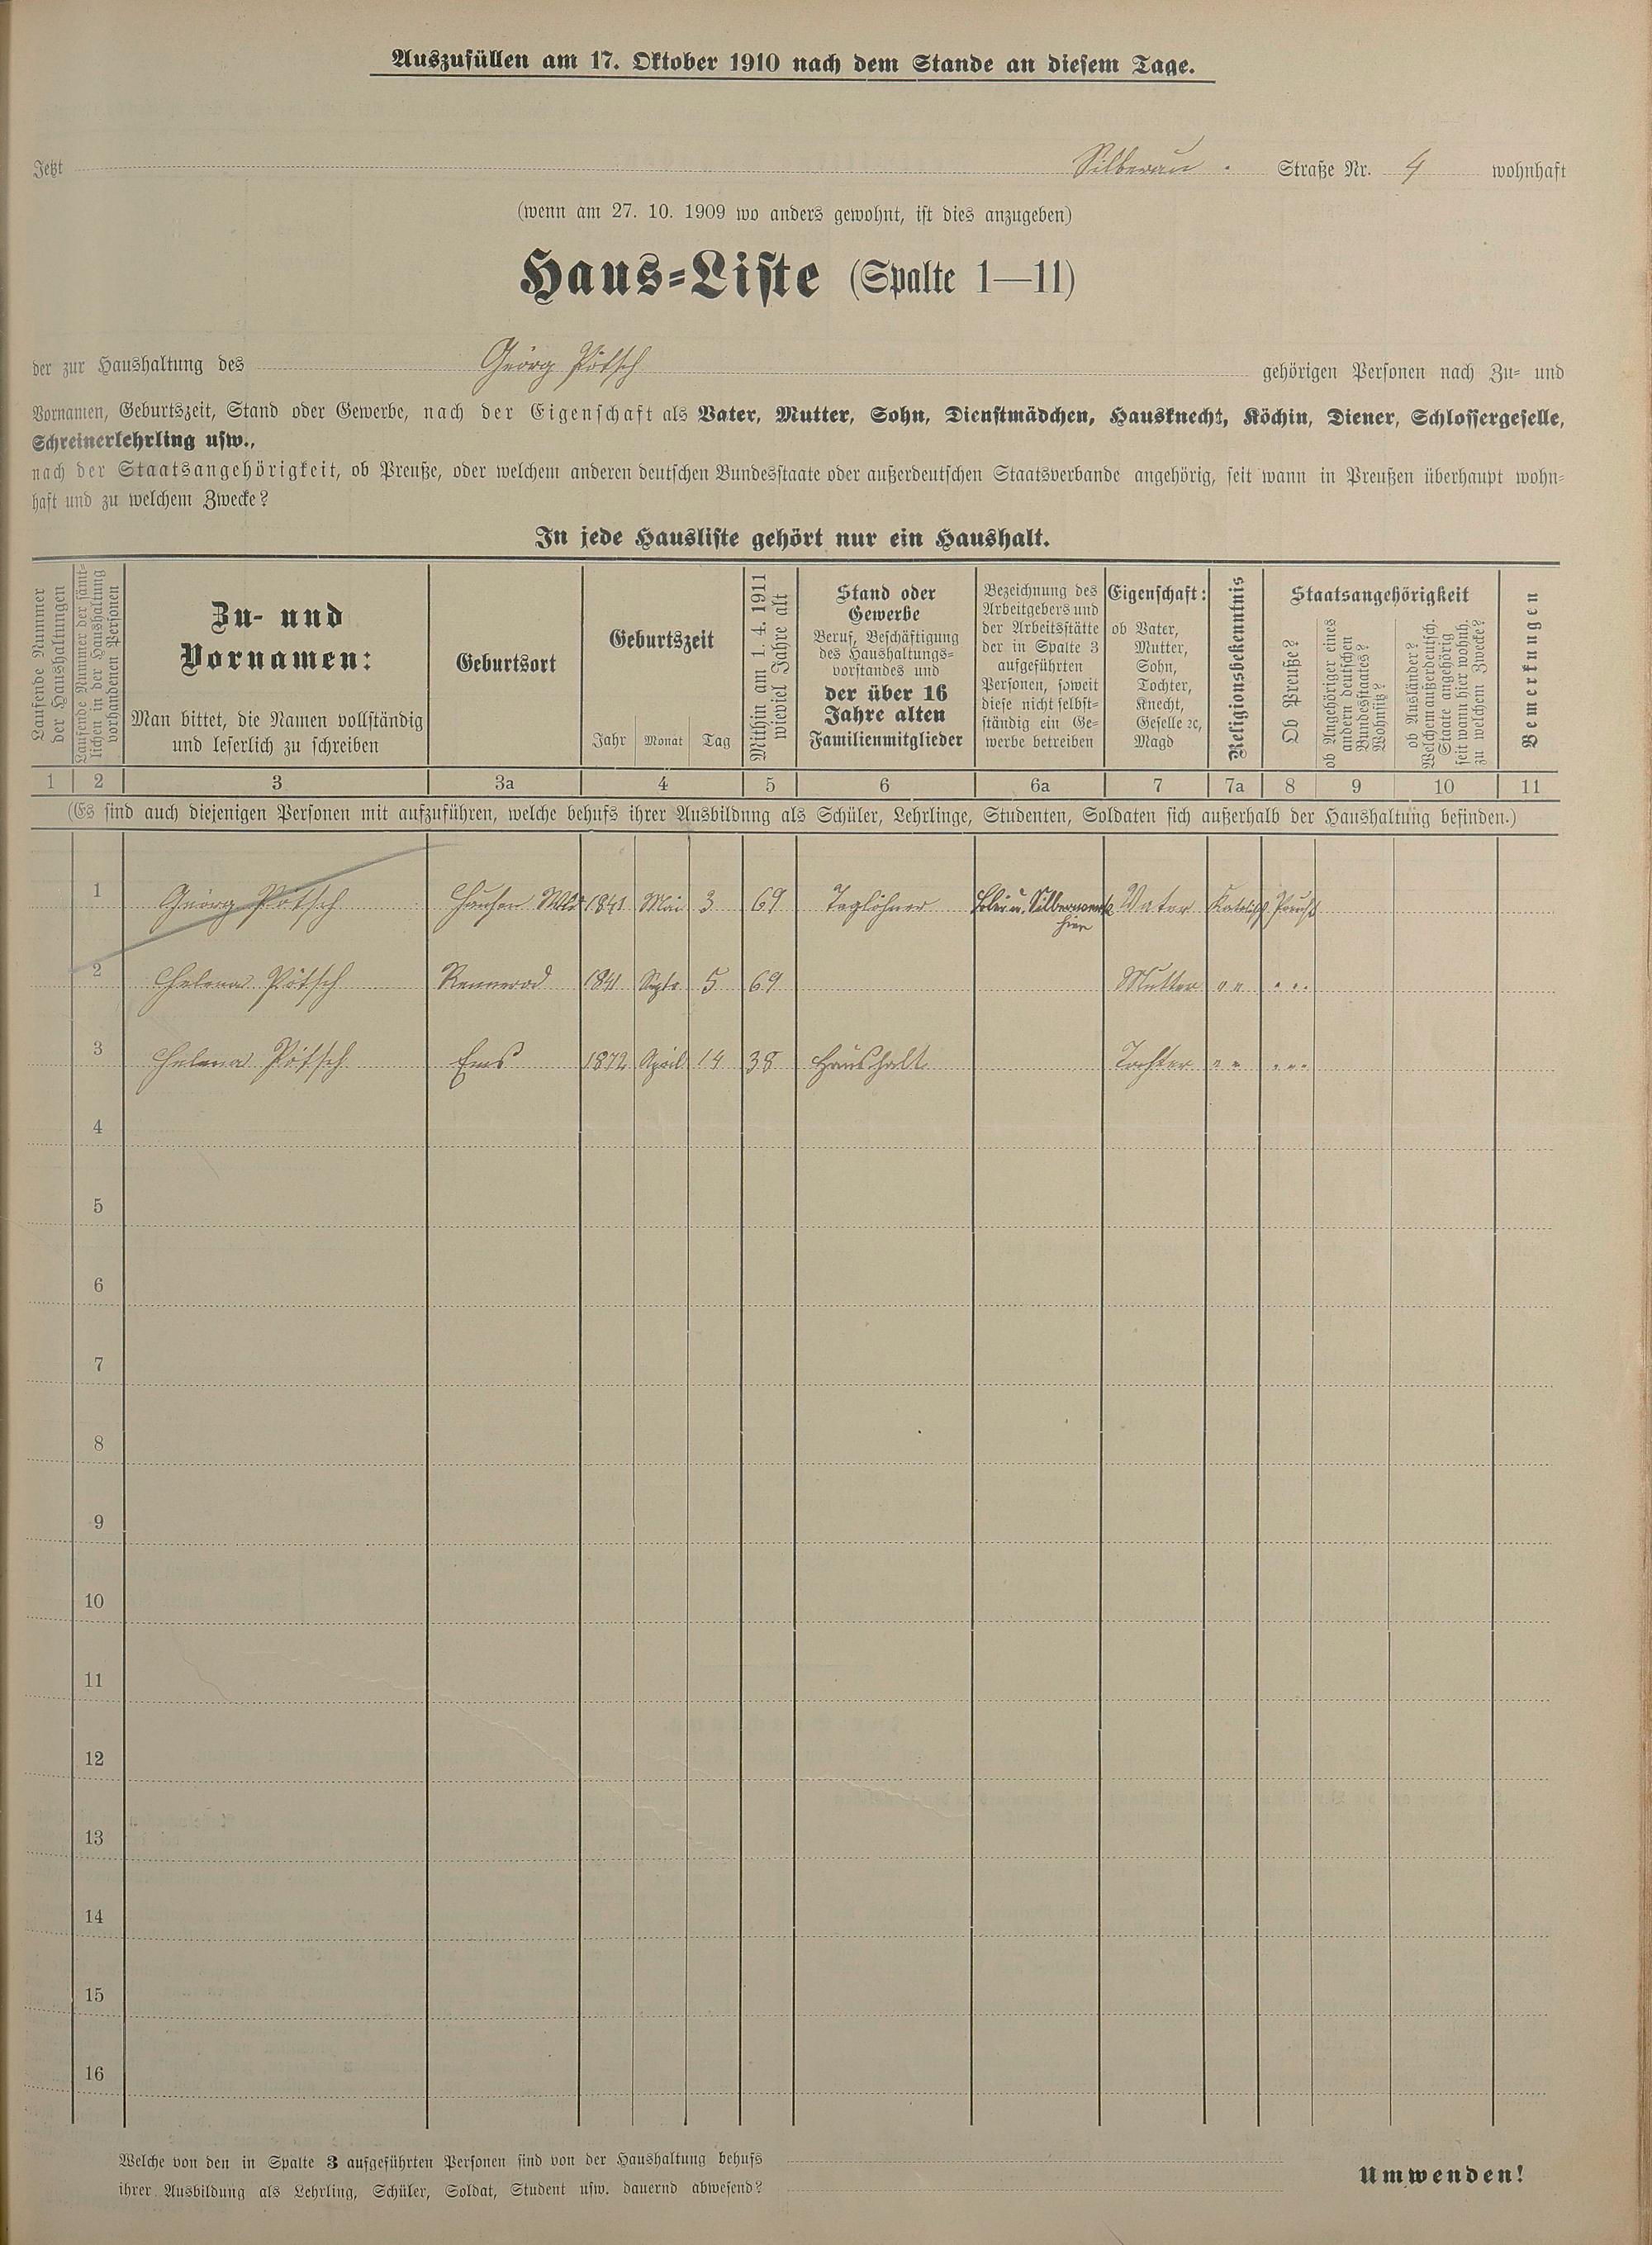 Auszufüllen am 17. Oktober 1910 nach dem Stande an diesem Tage.
Jetzt Silberau. Straße Nr. 4 wohnhaft
(wenn am 27. 10. 1909 wo anders gewohnt, ist dies anzugeben)
Haus-Liste (Spalte 1—11)
der zur Haushaltung des Georg Pötsch gehörigen Personen nach Zu- und
Vornamen, Geburtszeit, Stand oder Gewerbe, nach der Eigenschaft als Vater, Mutter, Sohn, Dienstmädchen, Hausknecht, Köchin, Diener, Schlossergeselle,
Schreinerlehrling usw.,
nach der Staatsangehörigkeit, ob Preuße, oder welchem anderen deutschen Bundesstaate oder außerdeutschen Staatsverbande angehörig, seit wann in Preußen überhaupt wohn-
haft und zu welchem Zwecke?
In jede Hausliste gehört nur ein Haushalt.
Laufende Nummer
der Haushaltungen
Laufende Nummer der sämt-
lichen in der Haushaltung
vorhandenen Personen
Zu- und
Vornamen:
Man bittet, die Namen vollständig
und leserlich zu schreiben
Geburtsort
Geburtszeit
Jahr Monat Tag
Mithin am 1. 4. 1911
wieviel Jahre alt
Stand oder
Gewerbe
Beruf, Beschäftigung
des Haushaltungs-
vorstandes und
der über 16
Jahre alten
Familienmitglieder
Bezeichnung des
Arbeitgebers und
der Arbeitsstätte
der in Spalte 3
aufgeführten
Personen, soweit
diese nicht selbst-
ständig ein Ge-
werbe betreiben
Eigenschaft:
ob Vater,
Mutter,
Sohn,
Tochter,
Knecht,
Geselle ꝛc,
Magd
Religionsbekenntnis
Staatsangehörigkeit
Ob Preuße?
ob Angehöriger eines
andern deutschen
Bundesstaates?
Wohnsitz?
ob Ausländer?
Welchem außerdeutsch.
Staate angehörig
seit wann hier wohnh.
zu welchem Zwecke?
Bemerkungen
1 2 3 3a 4 5 6 6a 7 7a 8 9 10 11
(Es sind auch diejenigen Personen mit aufzuführen, welche behufs ihrer Ausbildung als Schüler, Lehrlinge, Studenten, Soldaten sich außerhalb der Haushaltung befinden.)
1 Georg Pötsch Hausen 1841 Mai 3 69 Taglöhner Blei u. Silberwerk hier Vater Katolisch Preuße
2 Helena Pötsch Rennerod 1841 Septr 5 69 Mutter " " " "
3 Helena Pötsch Ems 1872 April 14 38 Haushalt Tochter " " " "
4
5
6
7
8
9
10
11
12
13
14
15
16
Welche von den in Spalte 3 aufgeführten Personen sind von der Haushaltung behufs
ihrer Ausbildung als Lehrling, Schüler, Soldat, Student usw. dauernd abwesend?
Umwenden!